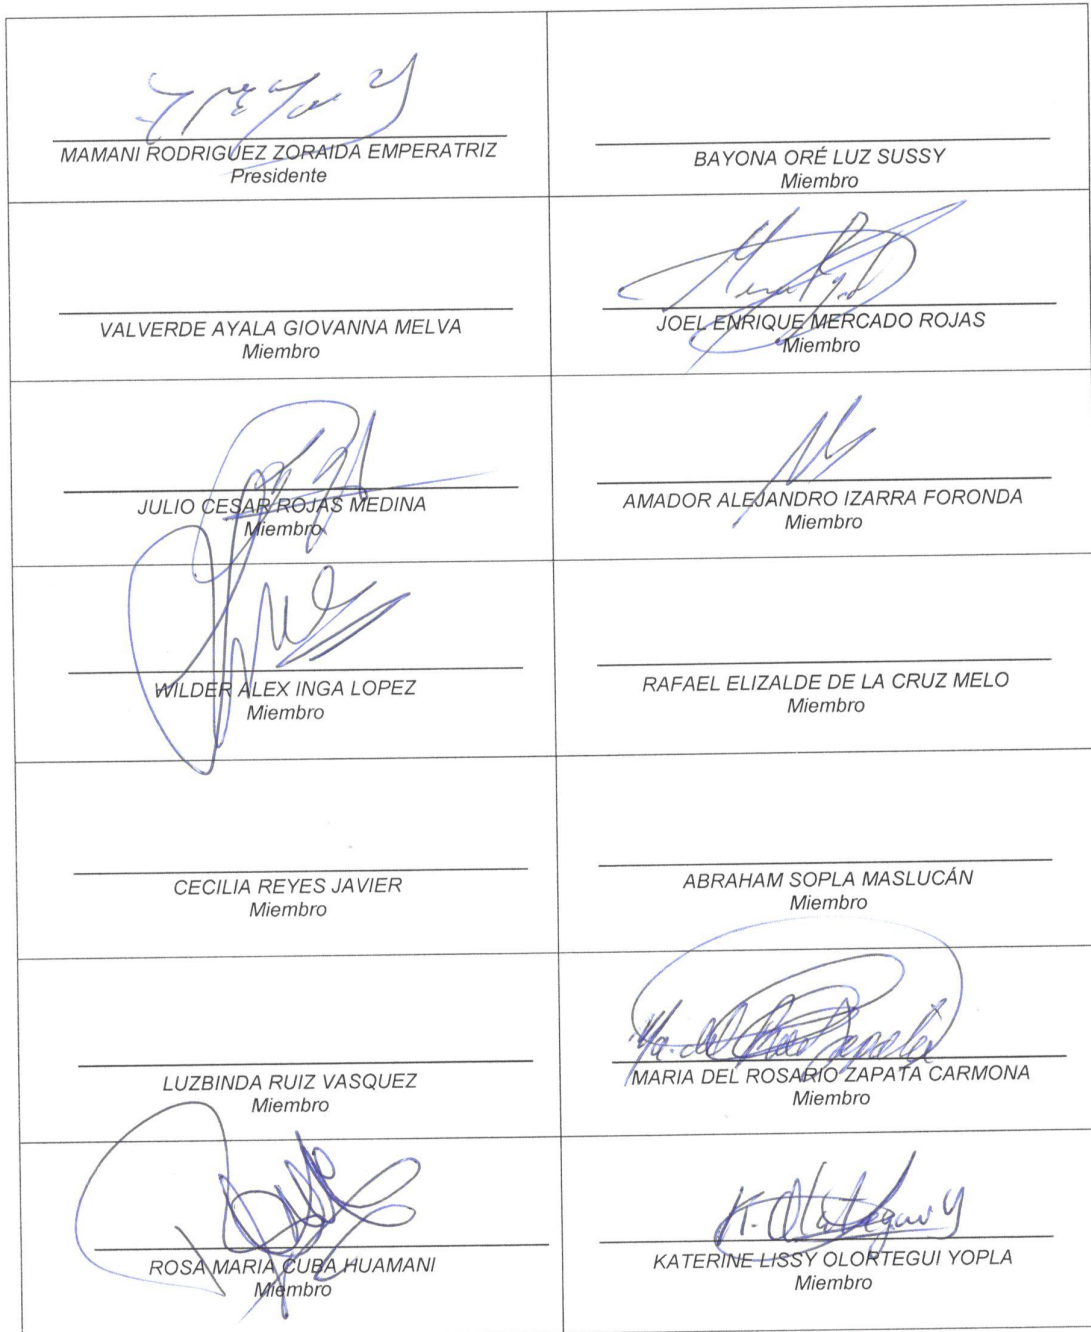 MAMANI RODRIGUEZ ZORAIDA EMPERATRIZ
Presidente
BAYONA ORÉ LUZ SUSSY
Miembro
VALVERDE AYALA GIOVANNA MELVA
Miembro
JOEL ENRIQUE MERCADO ROJAS
Miembro
JULIO CESAR ROJAS MEDINA
Miembro
AMADOR ALEJANDRO IZARRA FORONDA
Miembro
WILDER ALEX INGA LOPEZ
Miembro
RAFAEL ELIZALDE DE LA CRUZ MELO
Miembro
CECILIA REYES JAVIER
Miembro
ABRAHAM SOPLA MASLUCÁN
Miembro
LUZBINDA RUIZ VASQUEZ
Miembro
MARIA DEL ROSARIO ZAPATA CARMONA
Miembro
ROSA MARIA CUBA HUAMANI
Miembro
K. Olortegui Y
KATERINE LISSY OLORTEGUI YOPLA
Miembro